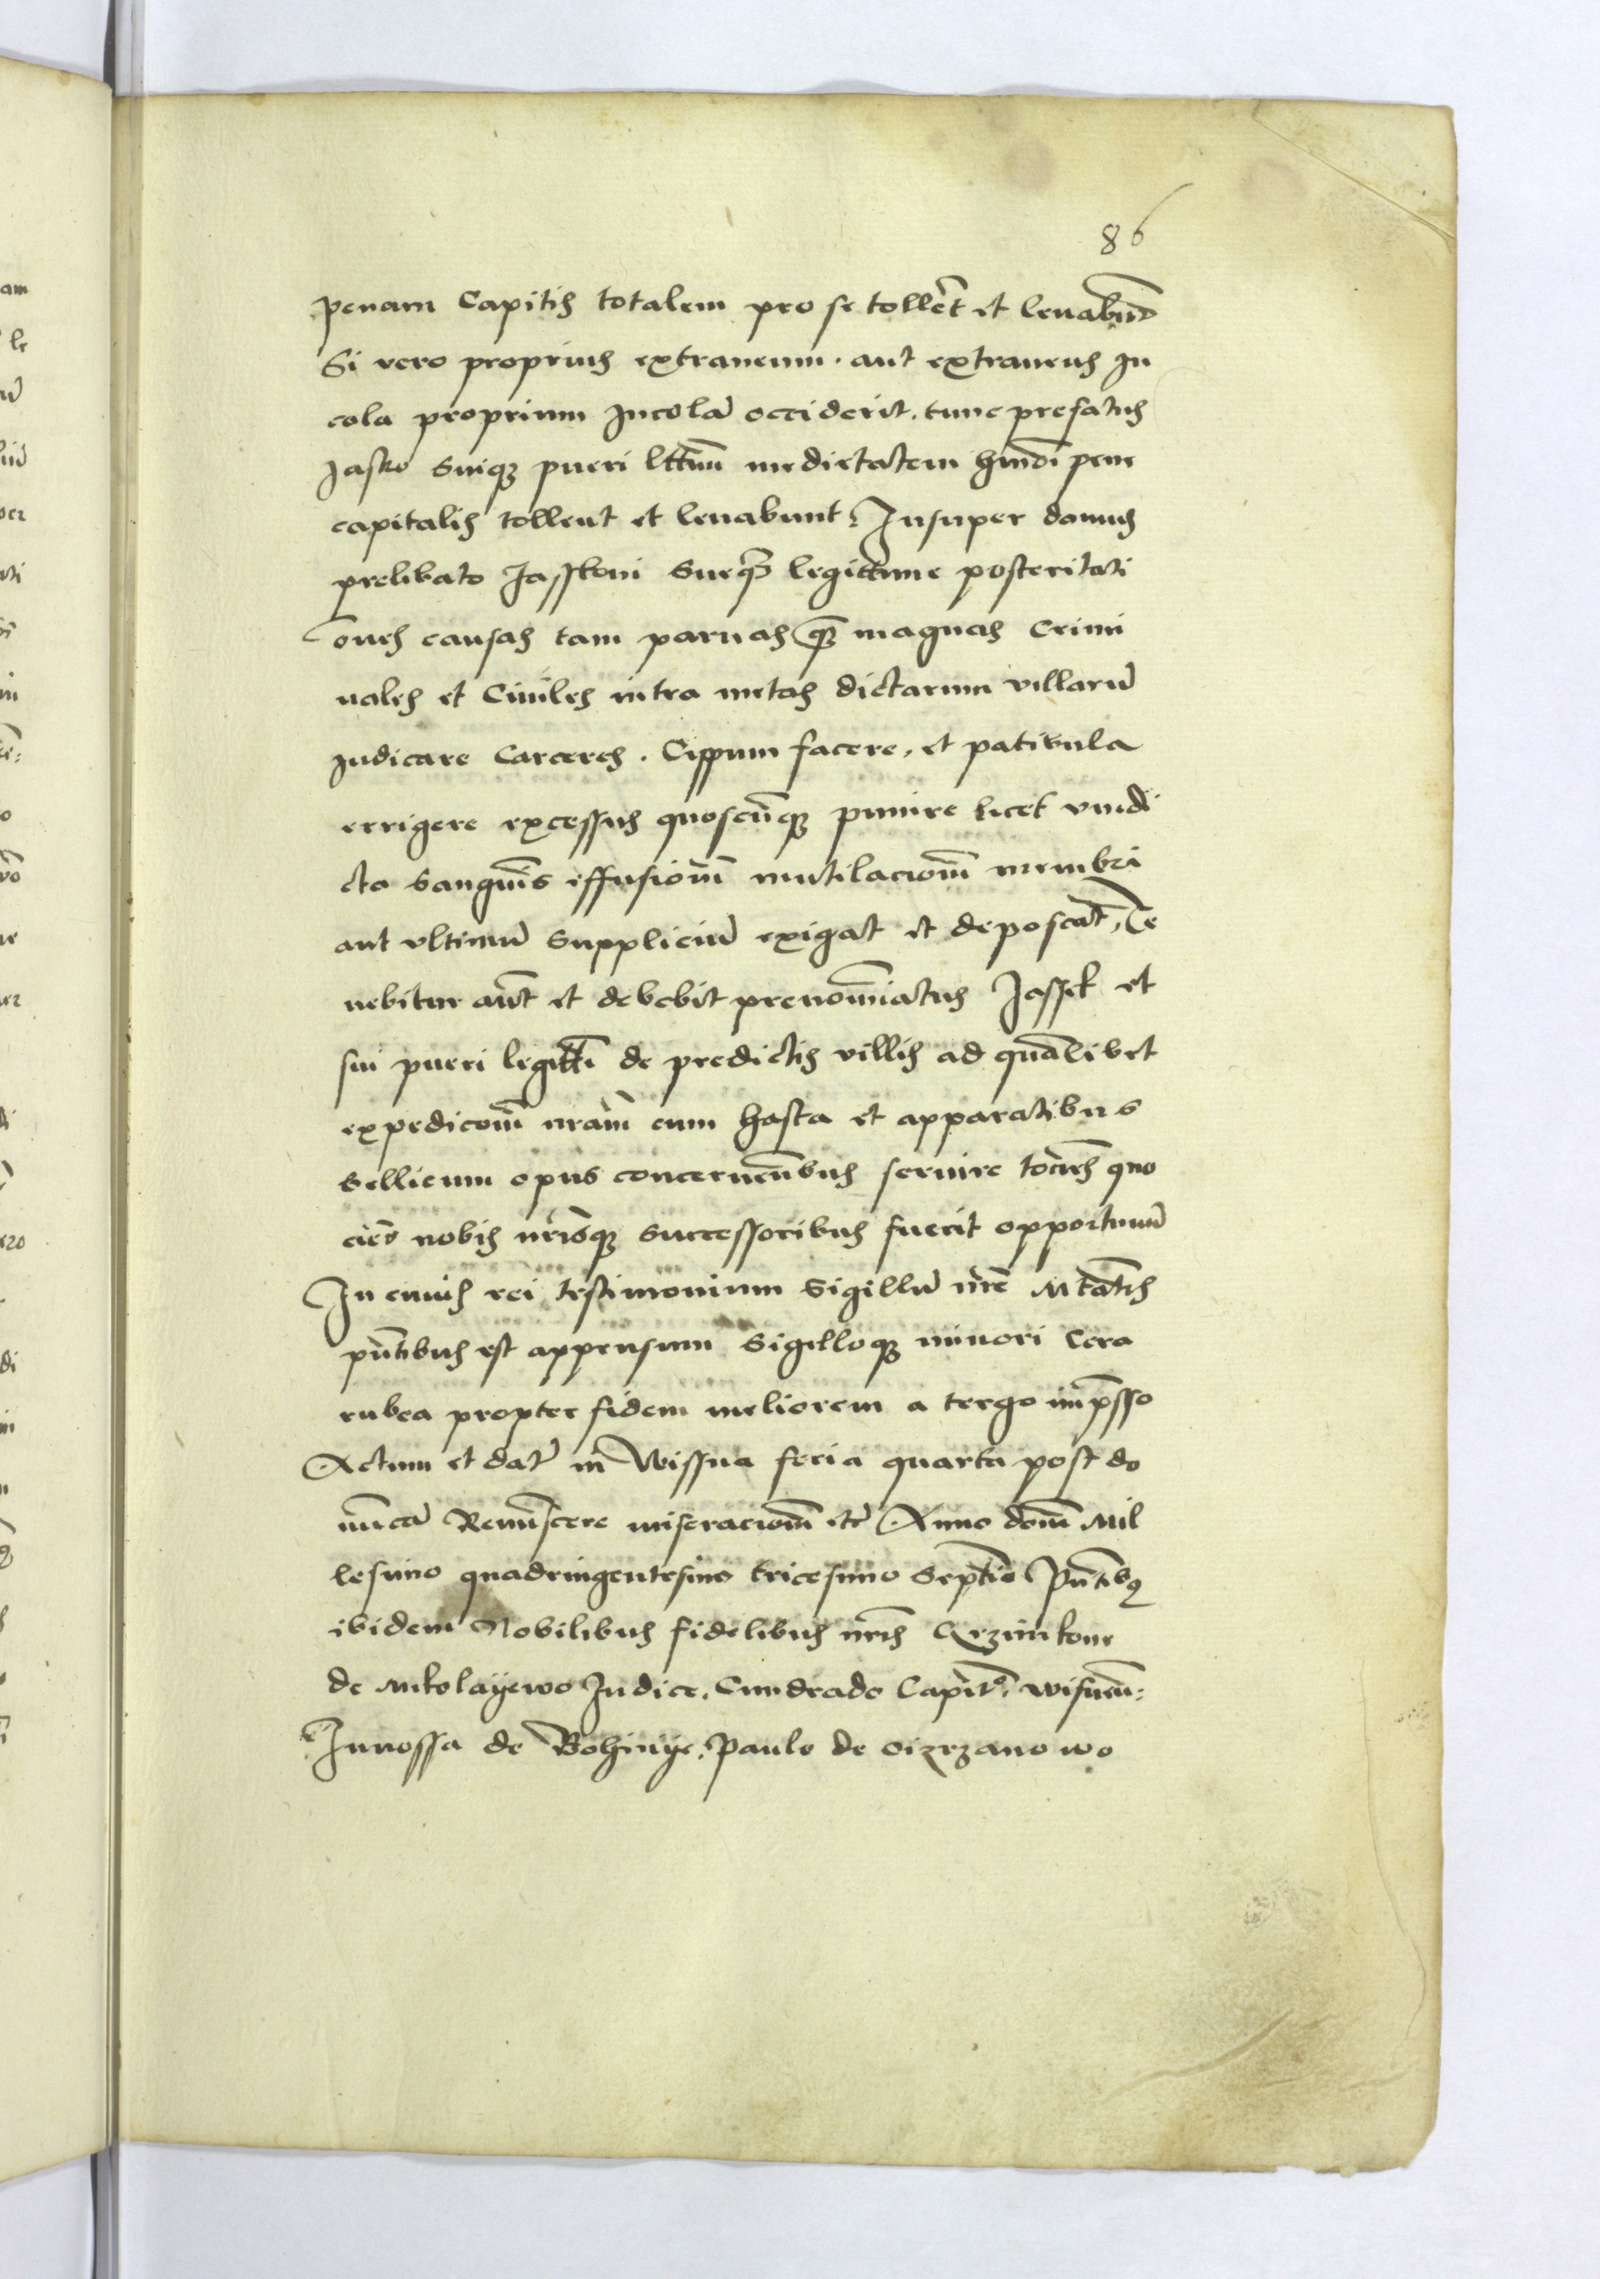 86
penam Capitis totalem pro se tollēt et leuabūt
Si vero proprius extraneum. aut extraneus In
cola proprium Incolā occiderit. tunc prefatus
Jasko suiqꝫ pueri lttimi medietatem hmōi pene
capitalis tollent et leuabunt. Insuper damus
prelibato Jasskoni sueqꝫ legittime posteritati
om̄es causas tam paruas qꝫ magnas Crimi
nales et Ciuiles intra metas dictarum villarū
Judicare Carceres. Cippum facere, et patibula
errigere excessus quoscūqꝫ punire licet vindi
cta sanguīs effusionē mutilacionē membri
aut vltimū suppliciū exigat et deposcat, Te
nebitur aūt et debebit prenoīatus Jassek et
sui pueri legitti de predictis villis ad quālibet
expedicōm nrām cum hasta et apparatibus
bellicum opus concernētibus seruire tociēs quo
ciēs nobis nrīsqꝫ successoribus fuerit opportunū
In cuius rei testimonium Sigillū nrē Mtātis
pn̄tibus est appensum Sigilloqꝫ minori Cera
rubea propter fidem meliorem a tergo imp̄sso
Actum et datū in Wissna feria quarta post do
minicā Reminiscere miseracionū etc̄ Anno domī Mil
lesimo quadringentesimo tricesimo Septīo Pn̄tibꝫ
ibidem Nobilibus fidelibus nr̄is Qrzinkone
de Mikolayewo Judice, Cundrado Capitº. wisnen̄:
Junossa de Bohinije, Paulo de Oizrzanowo